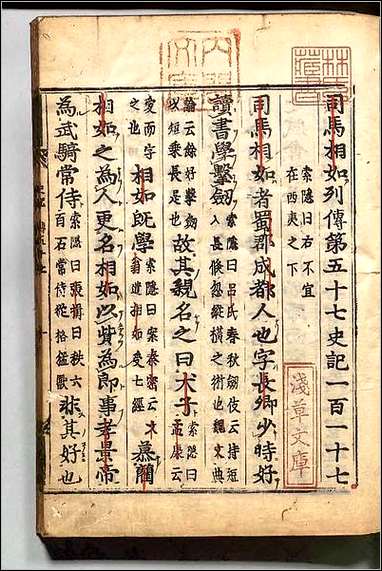 司馬相如列傳第五十七史記一百一十七
索隱曰右不宜
在西夷之下
司馬相如者蜀郡成都人也字長卿少時好
讀書學擊劍
索隱曰呂氏春秋劍伎云持短
入長倏忽縱橫之術也魏文典
論云餘好擊劍善
以短乘長是也
故其親名之曰犬子
索隱曰
孟康云
愛而字
之也
相如既學
索隱曰案秦宓云文
翁遣相如受七經
慕藺
相如之為人更名相如以貲為郎事孝景帝
為武騎常侍
索隱曰張揖曰秩六
百石常侍從格猛獸
非其好也
林氏藏書
內閣文庫
淺草文庫